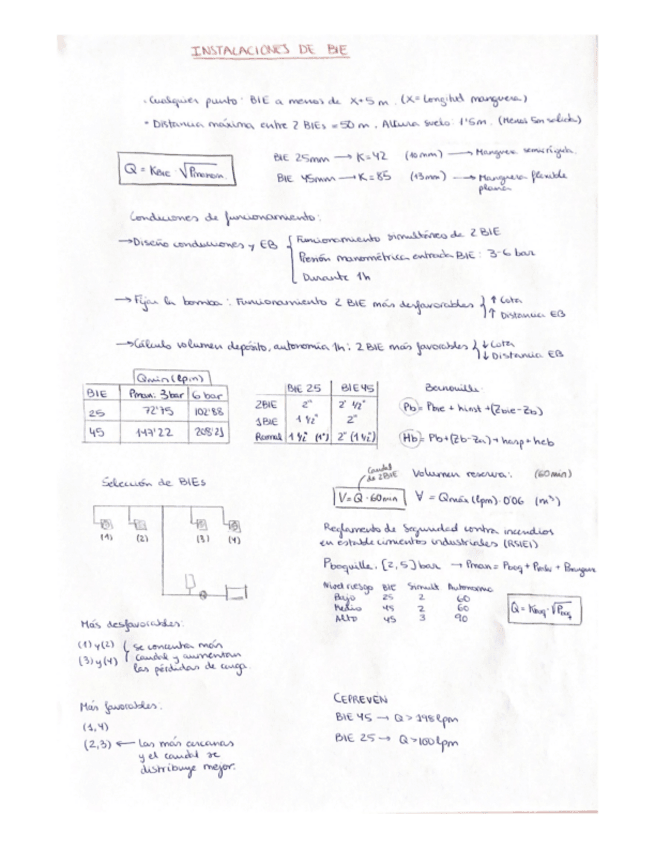 INSTALACIONES DE BIE
· Cualquier punto: BIE a menos de X+5 m. (X= Longitud manguera)
• Distancia máxima entre 2 BIEs = 50 m. Altura suelo: 1'5m. (Menos 5m salida)
Q = K_BIE · √Pmanom
BIE 25mm → K=42 (10mm) → Manguera semirrígida.
BIE 45mm → K=85 (13mm) → Manguera flexible
plana
Condiciones de funcionamiento:
→Diseño conducciones y EB { Funcionamiento simultáneo de 2 BIE
Presión manométrica entrada BIE: 3-6 bar
Durante 1h
→ Fijar la bomba: Funcionamiento 2 BIE más desfavorables { ↑ Cota
↑ Distancia EB
→Cálculo volumen depósito, autonomía 1h: 2 BIE más favorables { ↓ Cota
↓ Distancia EB
Qmin (lpm)
BIE Pman. 3bar 6 bar
25 72'75 102'88
45 147'22 208'21
BIE 25 BIE 45
2BIE 2" 2 1/2"
1BIE 1 1/2" 2"
Ramal 1 1/2" (1") 2" (1 1/2)
Bernouille:
Pb = Pbie + hinst + (Zbie - Zb)
Hb = Pb + (Zb - Za) + hasp + heb
Selección de BIEs
(1) (2) (3) (4)
Caudal
de 2BIE
Volumen reserva: (60min)
V = Q · 60min
∀ = Qmáx (lpm) · 0'06 (m³)
Reglamento de Seguridad contra incendios
en establecimientos industriales (RSIEI)
Pboquilla. [2, 5] bar → Pman = Pboq + + Pmanguera
Nivel riesgo BIE Simult Autonomía
Bajo 25 2 60
Medio 45 2 60
Alto 45 3 90
Q = Kboq · √Pboq
Más desfavorables:
(1) y (2) { se concentra más
(3) y (4) caudal y aumentan
las pérdidas de carga.
Más favorables:
(1,4)
(2,3) ← Las más cercanas
y el caudal se
distribuye mejor.
CEPREVEN
BIE 45 → Q > 198 lpm
BIE 25 → Q > 100 lpm